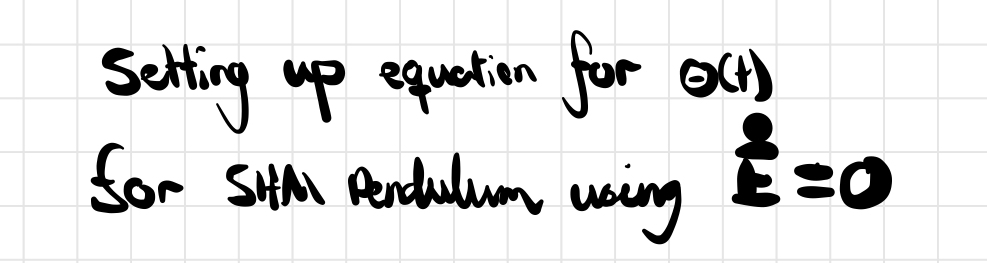 Setting up equation for Θ(t)
for SHM Pendulum using Ė = 0